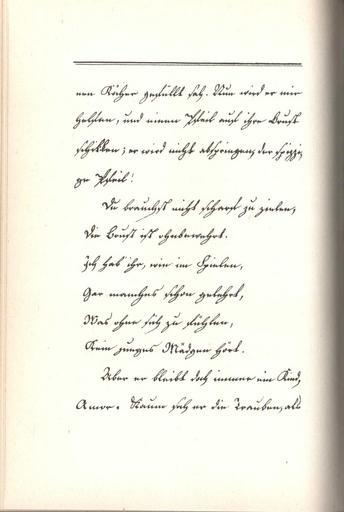 nen Köcher gefüllt hat. Nun wird er mir
helfen, und einen Pfeil auf ihre Brust
schicken; er wird nicht abspringen, der spizzi-
ge Pfeil!
Du brauchst nicht scharf zu zielen,
Die Brust ist ohnbewehrt.
Ich hab ihr, wie im Spielen,
Gar manches schon gelehrt,
Was ohne sich zu fühlen,
Kein junges Mädgen hört.
Aber er bleibt doch immer ein Kind,
Amor. Kaum sah er die Trauben, als